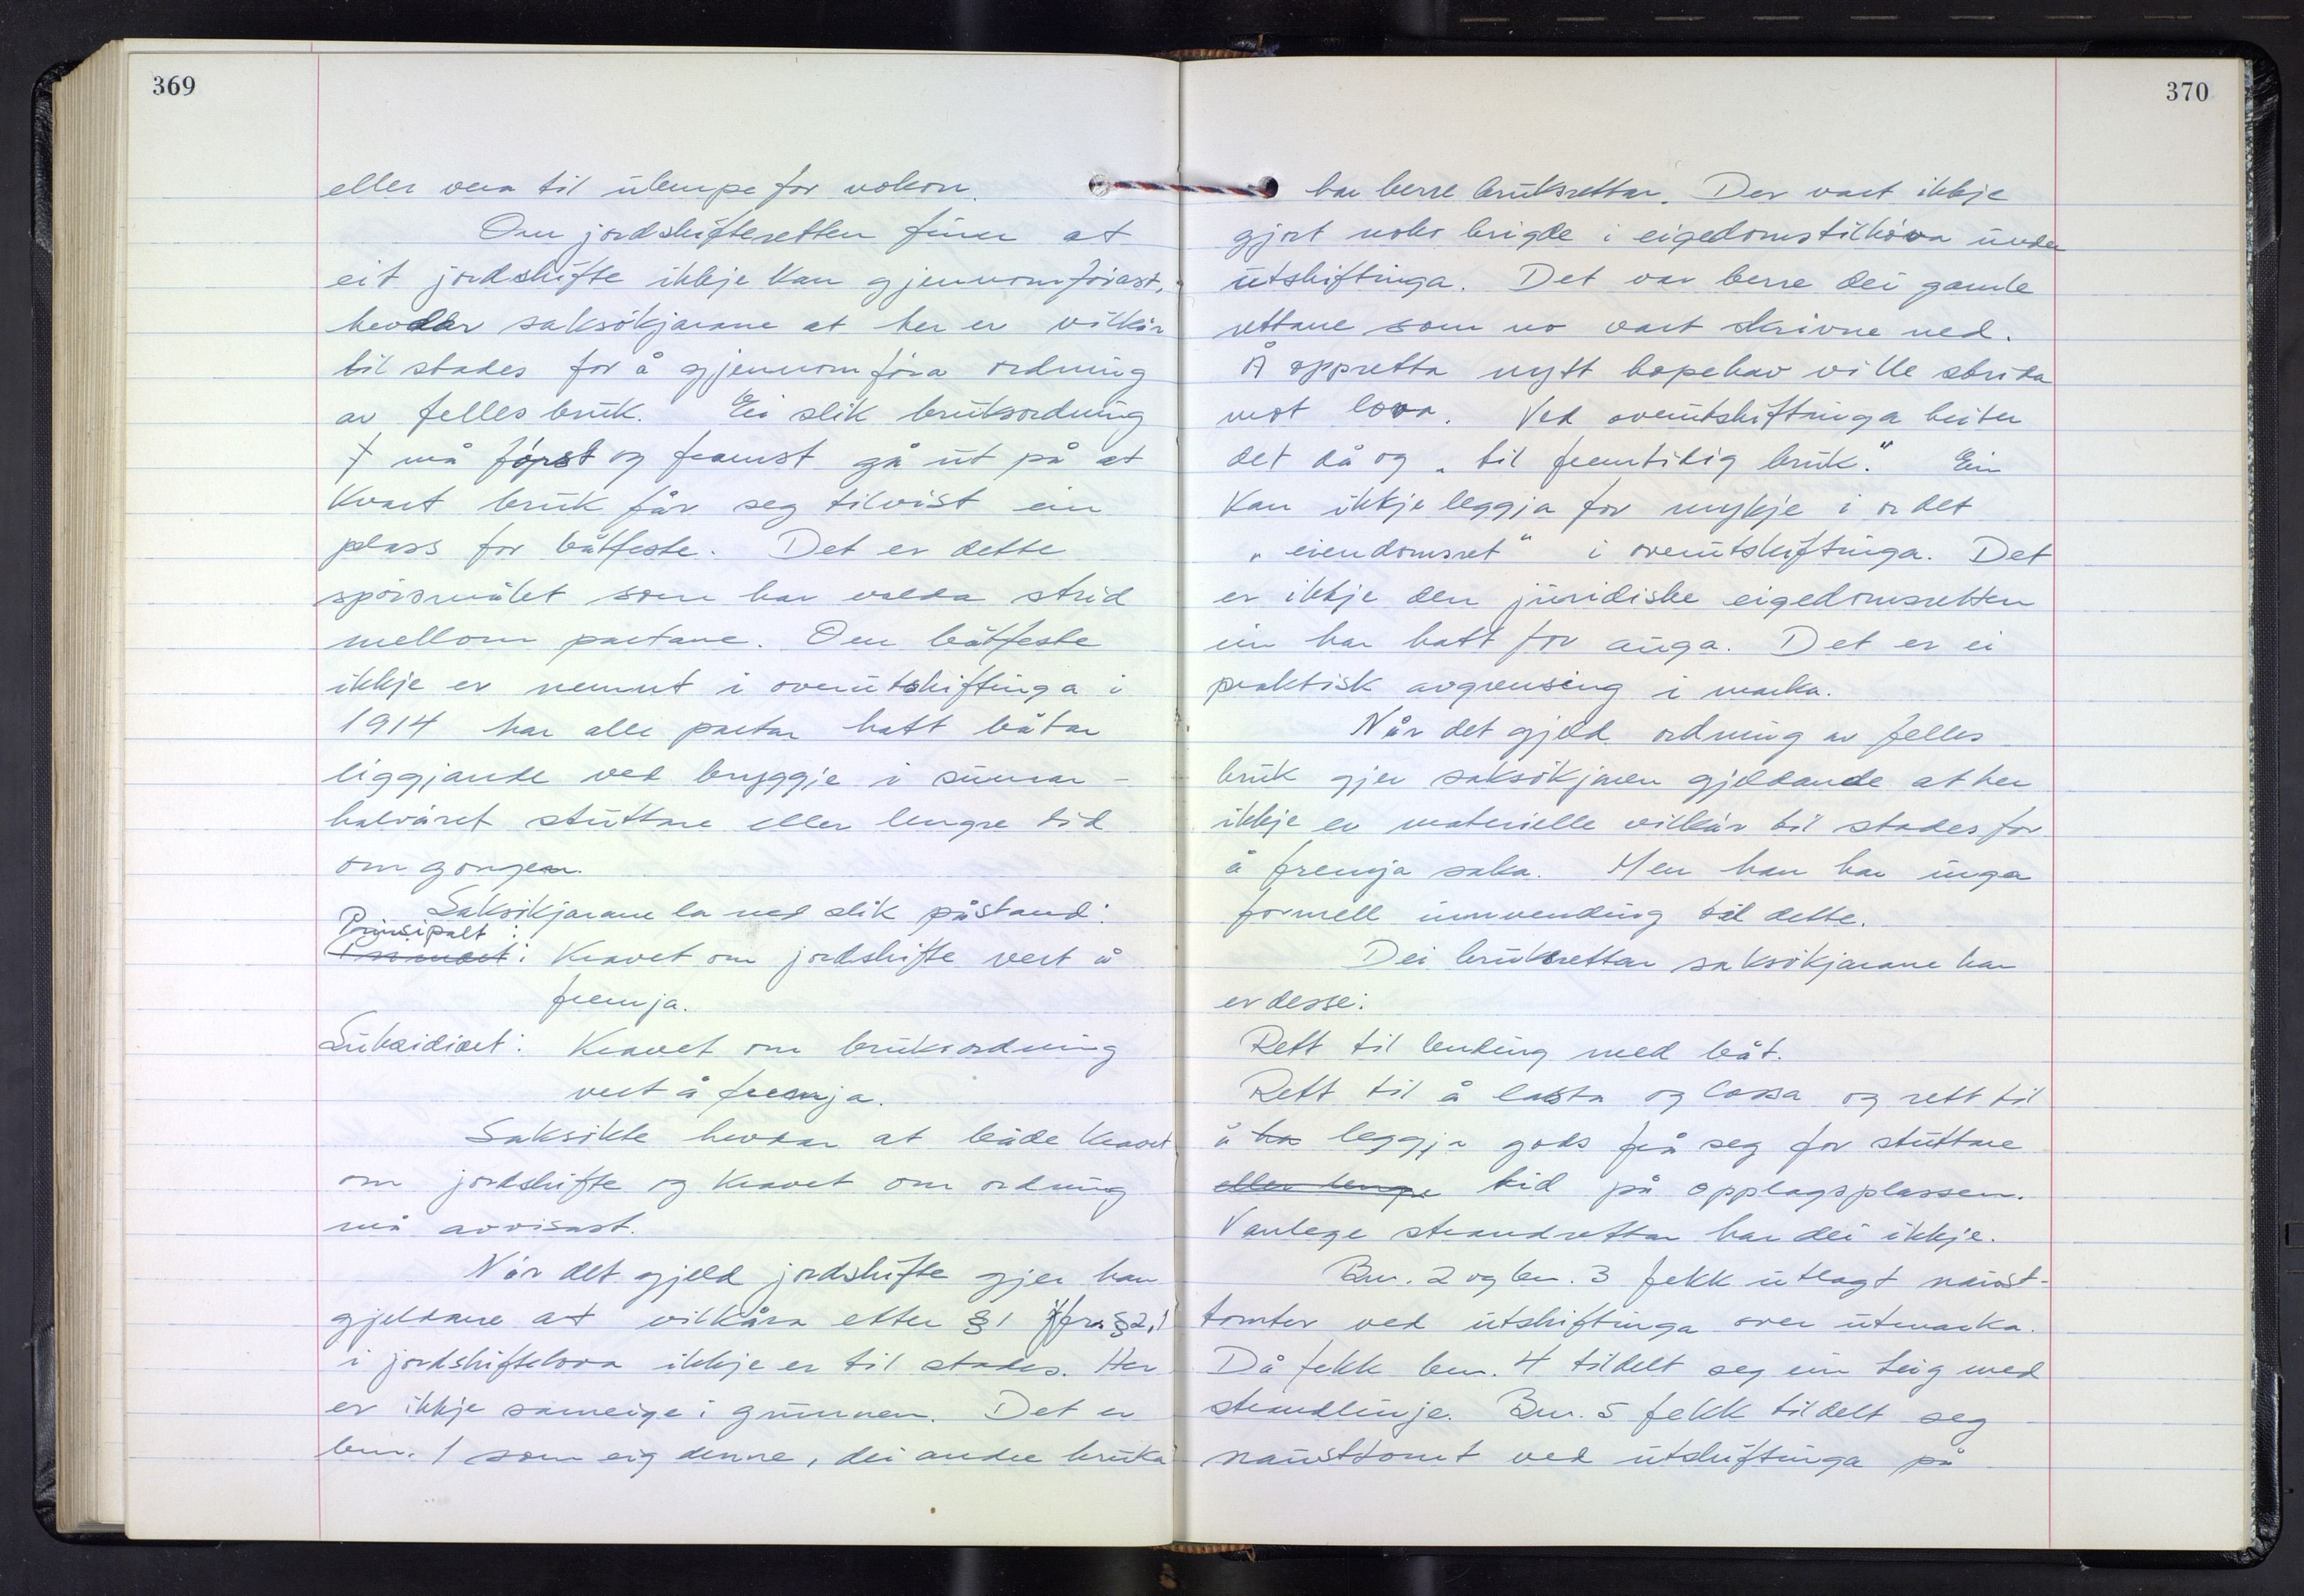 369
eller vera til ulempe for nokon.
Om jordskifteretten finn at
eit jordskifte ikkje kan gjennomförast,
hevdar saksökjarane at her er vilkår
til stades for å gjennomföra ordning
av felles bruk. Ei slik bruksordning
må först og framst gå ut på at
kvart bruk får seg tilvist ein
plass for båtfeste. Det er dette
spörsmålet som har valda strid
mellom partane. Om båtfeste
ikkje er nemnt i overutskiftinga i
1914 har alle partar hatt båtar
liggjande ved bryggje i sumar-
halvåret stuttare eller lengre tid
om gongen.
Saksökjarane la ned slik påstand:
Prinsipalt:
Primært: Kravet om jordskifte vert å
fremja.
Subsidiært: Kravet om bruksordning
vert å fremja.
Saksökte hevdar at både kravet
om jordskifte og kravet om ordning
må avvisast.
Når det gjeld jordskifte gjer han
gjeldane at vilkåra etter § 1 jfr. § 2,1
i jordskiftelova ikkje er til stades. Her
er ikkje sameige i grunnen. Det er
bnr. 1 som eig denne, dei andre bruka
370
har berre bruksrettar. Der vart ikkje
gjort noko brigde i eigedomstilhöva under
utskiftinga. Det var berre dei gamle
rettane som no vart skrivne ned.
Å oppretta nytt hopehav ville strida
mot lova. Ved overutskiftninga heiter
det då og „til fremtidig bruk." Ein
kan ikkje leggja for mykje i ordet
„eiendomsret" i overutskiftinga. Det
er ikkje den juridiske eigedomsretten
ein har hatt for auga. Det er ei
praktisk avgrensing i marka.
Når det gjeld ordning av felles
bruk gjer saksökjaren gjeldande at her
ikkje er materielle vilkår til stades for
å fremja saka. Men han har inga
formell innvending til dette.
Dei bruksrettar saksökjarane har
er desse:
Rett til lending med båt.
Rett til å lasta og lossa og rett til
å ha leggja gods frå seg for stuttare
eller lengre tid på opplagsplassen.
Vanlege strandrettar har dei ikkje.
Bnr. 2 og bnr. 3 fekk utlagt naust-
tomter ved utskiftinga over utmarka.
Då fekk bnr. 4 tildelt seg ein teig med
strandlinje. Bnr. 5 fekk tildelt seg
nausttomt ved utskiftinga på